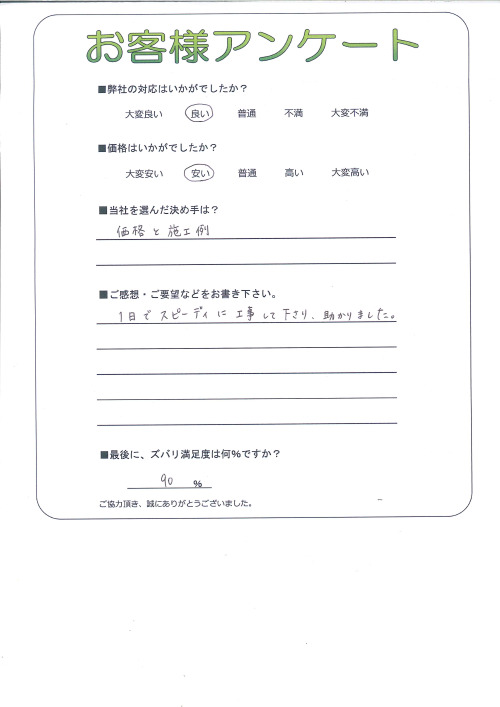 お客様アンケート
■弊社の対応はいかがでしたか？
大変良い 良い 普通 不満 大変不満
■価格はいかがでしたか？
大変安い 安い 普通 高い 大変高い
■当社を選んだ決め手は？
価格と施工例
■ご感想・ご要望などをお書き下さい。
1日でスピーディに工事して下さり、助かりました。
■最後に、ズバリ満足度は何%ですか？
90 %
ご協力頂き、誠にありがとうございました。